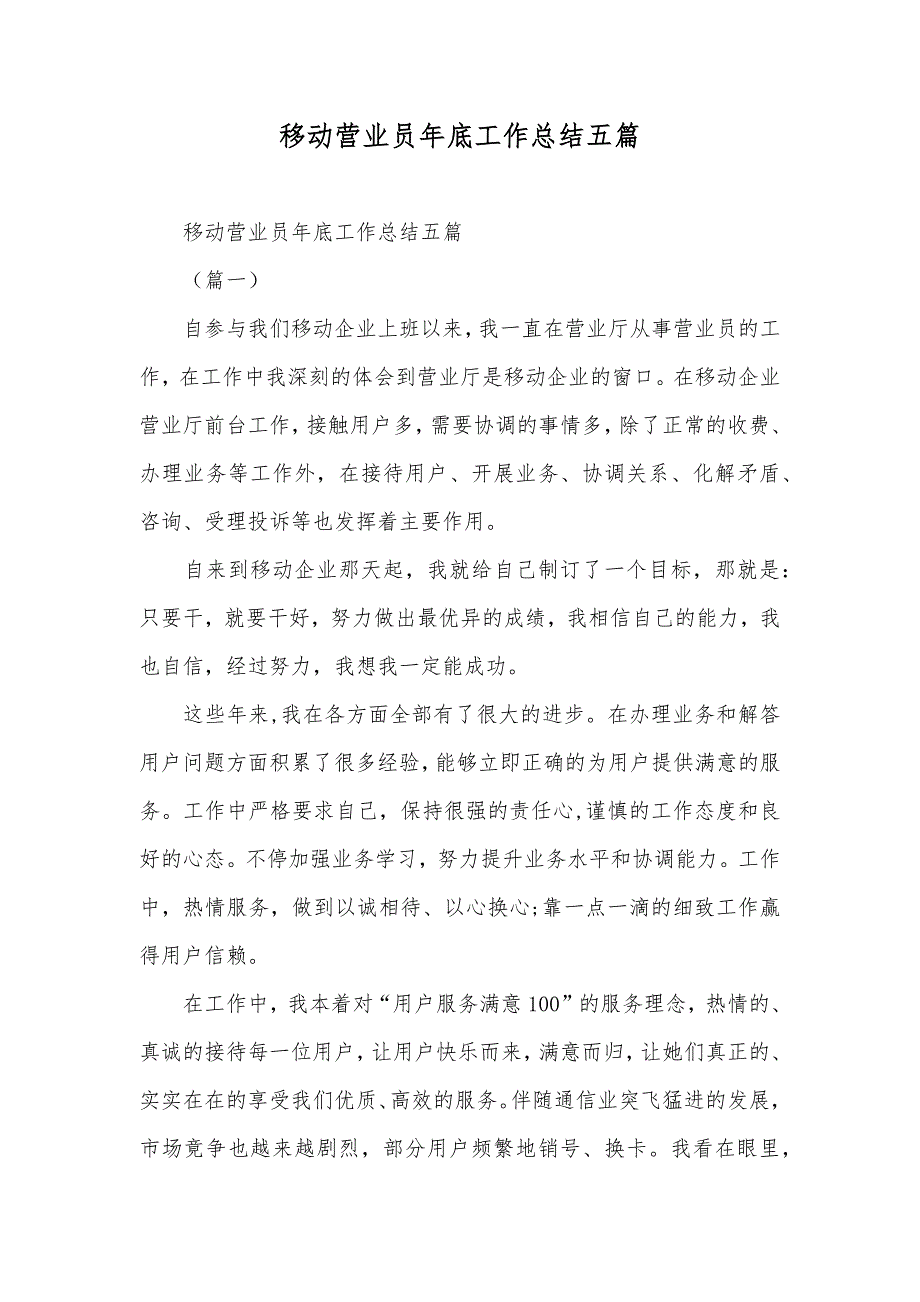 移动营业员年底工作总结五篇
移动营业员年底工作总结五篇
（篇一）
自参与我们移动企业上班以来,我一直在营业厅从事营业员的工
作,在工作中我深刻的体会到营业厅是移动企业的窗口。在移动企业
营业厅前台工作,接触用户多,需要协调的事情多,除了正常的收费、
办理业务等工作外，在接待用户、开展业务、协调关系、化解矛盾、
咨询、受理投诉等也发挥着主要作用。
自来到移动企业那天起，我就给自己制订了一个目标，那就是：
只要干，就要干好，努力做出最优异的成绩，我相信自己的能力，我
也自信，经过努力，我想我一定能成功。
这些年来,我在各方面全部有了很大的进步。在办理业务和解答
用户问题方面积累了很多经验,能够立即正确的为用户提供满意的服
务。工作中严格要求自己，保持很强的责任心,谨慎的工作态度和良
好的心态。不停加强业务学习，努力提升业务水平和协调能力。工作
中，热情服务，做到以诚相待、以心换心;靠一点一滴的细致工作赢
得用户信赖。
在工作中，我本着对“用户服务满意100”的服务理念，热情的、
真诚的接待每一位用户，让用户快乐而来，满意而归，让她们真正的、
实实在在的享受我们优质、高效的服务。伴随通信业突飞猛进的发展，
市场竟争也越来越剧烈，部分用户频繁地销号、换卡。我看在眼里，